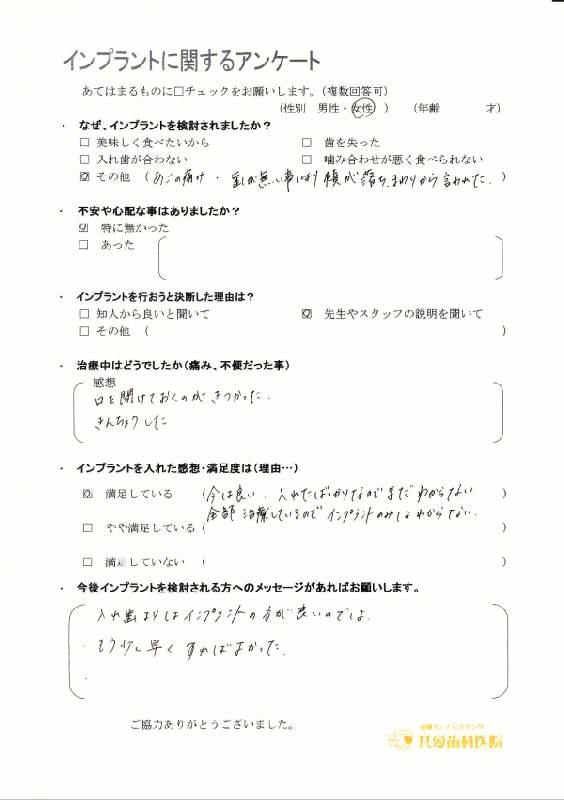 インプラントに関するアンケート
あてはまるものに□チェックをお願いします。(複数回答可)
(性別 男性・女性) (年齢 才)
・ なぜ、インプラントを検討されましたか?
□ 美味しく食べたいから □ 歯を失った
□ 入れ歯が合わない □ 噛み合わせが悪く食べられない
☑ その他 (あごの痛み・歯が無い事により頬が落ち、まわりから言われた。)
・ 不安や心配な事はありましたか?
☑ 特に無かった
□ あった
・ インプラントを行おうと決断した理由は?
□ 知人から良いと聞いて ☑ 先生やスタッフの説明を聞いて
□ その他 ( )
・ 治療中はどうでしたか(痛み、不便だった事)
感想
口を開けておくのがきつかった.
きんちょうした
・ インプラントを入れた感想・満足度は(理由…)
☑ 満足している (今は良い、入れたばかりなのでまだわからない )
全部治療しているのでインプラントのみはわからない.
□ やや満足している( )
□ 満足していない ( )
・ 今後インプラントを検討される方へのメッセージがあればお願いします。
入れ歯よりはインプラントの方が良いのでは.
・もう少し早くすればよかった.
ご協力ありがとうございました。
共愛歯科医院